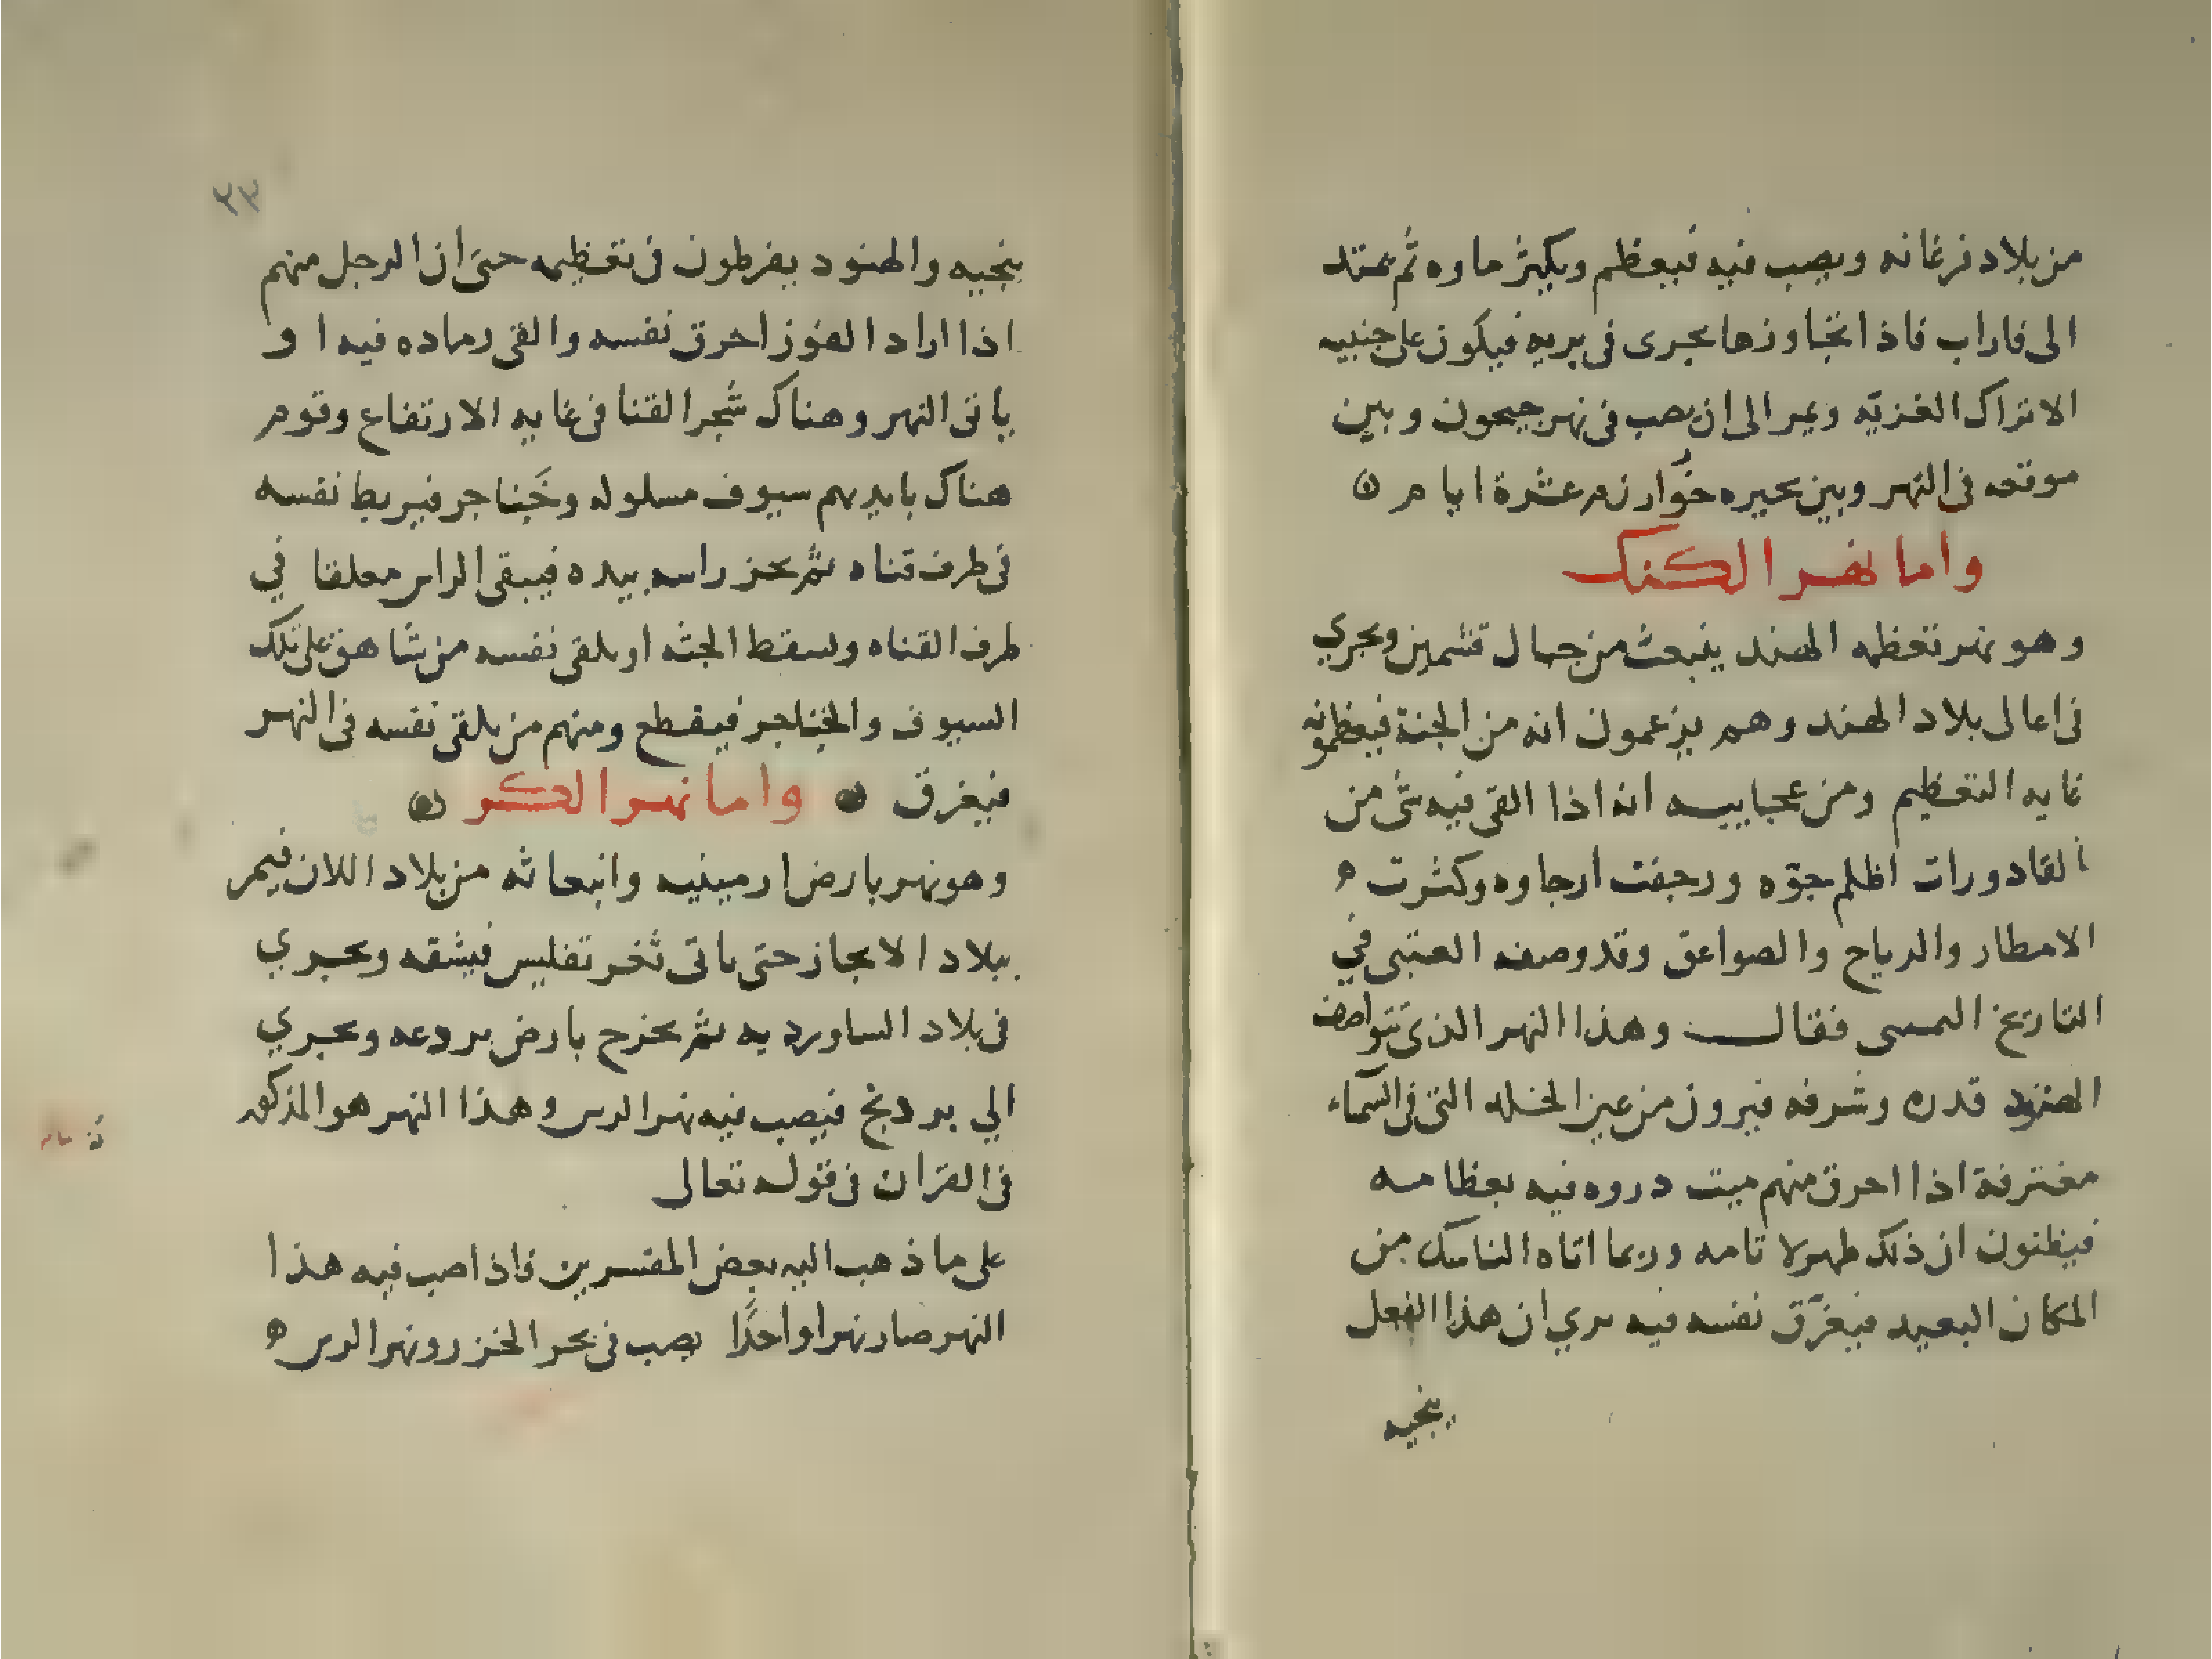 من بلاد فرغانه ويصب فيه فيعظم ويكثر ماوه ثم يمتد
الى فاراب فاذا تجاوزها يجرى فى بريه فيكون على جنبيه
الاتراك الغزيّه ويمر الى ان يصب فى نهر جيحون وبين
موقعه فى النهر وبين بحيره خوارزم عشرة ايام
واما نهر الكنك
وهو نهر تعظمه الهند ينبعث من جبال قشمير ويجري
فى اعالى بلاد الهند وهم يزعمون انه من الجنة فيعظمونه
غايه التعظيم ومن عجاييبه انه اذا القى فيه شى من
القادورات اظلم جوّه ورجفت ارجاوه وكثرت
الامطار والرياح والصواعق وقد وصف العتبى في
التاريخ اليمينى فقال وهذا النهر الذى يتواصف
الهنود قدره وشرفه فيرون من عين الخلد التى فى السماء
مغترفة اذا احرق منهم ميت دروه فيه بعظامه
فيظنون ان ذلك طهرا تامه وربما اتاه الناسك من
المكان البعيد فيغرّق نفسه فيه يري ان هذا الفعل
ينجيه
٢٣
ينجيه والهنود يفرطون فى تعظيمه حتى ان الرجل منهم
اذا اراد الفوز احرق نفسه والقى رماده فيه او
ياتى النهر وهناك شجر القنا فى غايه الارتفاع وقوم
هناك بايديهم سيوف مسلوله وخناجر فيربط نفسه
فى طرف قناه ثم يحز راسه بيده فيبقى الراس معلقا في
طرف القناه وتسقط الجثه او يلقى نفسه من شاهق على تلك
السيوف والخناجر فيقطع ومنهم من يلقى نفسه فى النهر
فيغرق واما نهر الكر
وهو نهر بارض ارمينيه وانبعاثه من بلاد اللان فيمر
ببلاد الابحاز حتى ياتى ثغر تفليس فيشقه ويجري
فى بلاد الساورديه ثم يخرج بارض بردعه ويجري
الي بردنج فيصب فيه نهر الرس وهذا النهر هو المذكور
فى القران فى قوله تعالى
على ما ذهب اليه بعض المفسرين فاذا صب فيه هذا
النهر صار نهرا واحدًا يصب فى بحر الخزر ونهر الرس